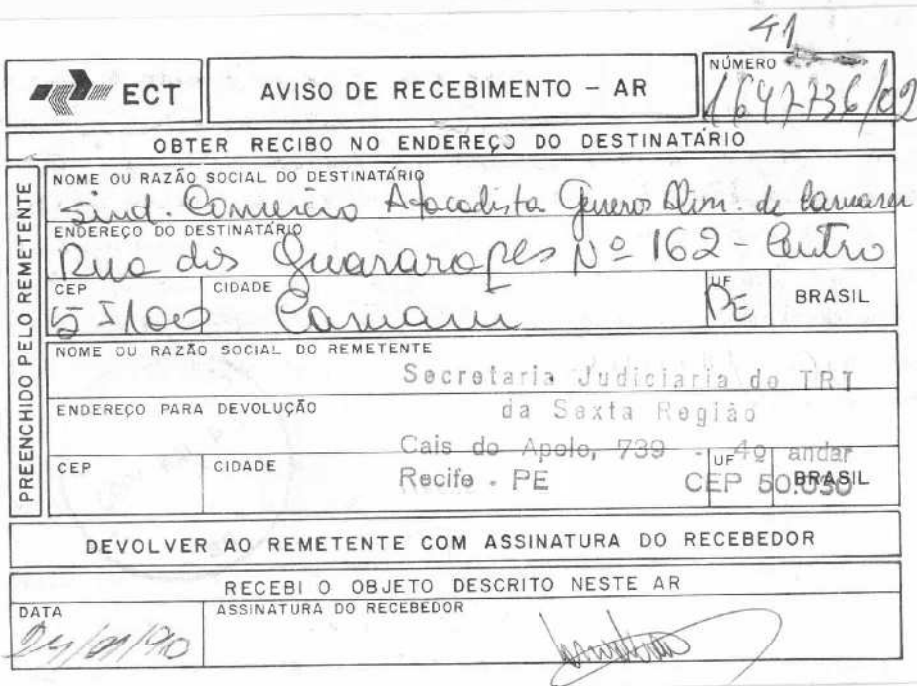 41
ECT
AVISO DE RECEBIMENTO - AR
NÚMERO
1647736/02
OBTER RECIBO NO ENDEREÇO DO DESTINATÁRIO
PREENCHIDO PELO REMETENTE
NOME OU RAZÃO SOCIAL DO DESTINATÁRIO
Sind. Comércio Atacadista Generos Alim. de Caruaru
ENDEREÇO DO DESTINATÁRIO
Rua dos Guararapes Nº 162 - Centro
CEP CIDADE UF
55100 Caruaru PE BRASIL
NOME OU RAZÃO SOCIAL DO REMETENTE
Secretaria Judiciaria do TRT
ENDEREÇO PARA DEVOLUÇÃO
da Sexta Região
Cais do Apolo, 739 - 4º andar
CEP CIDADE UF BRASIL
Recife - PE CEP 50.030
DEVOLVER AO REMETENTE COM ASSINATURA DO RECEBEDOR
RECEBI O OBJETO DESCRITO NESTE AR
DATA
ASSINATURA DO RECEBEDOR